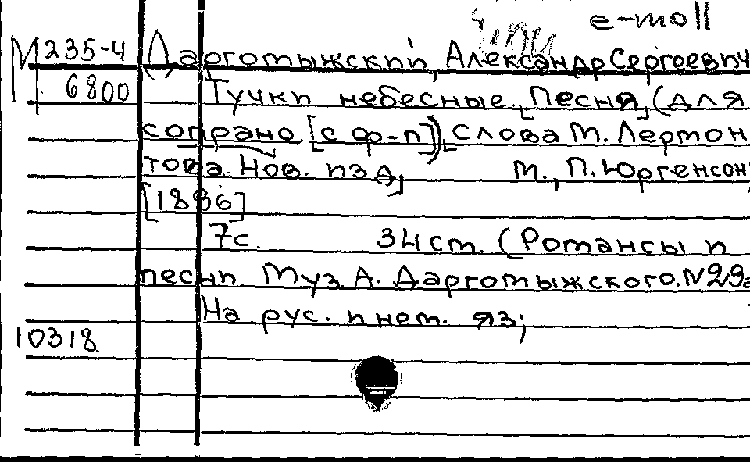 e-moll
М 235-4 Даргомыжский, Александр Сергеевич
6800 Тучки небесные. Песня (для
сопрано [с ф-п]), слова М. Лермон
това. Нов. изд. М., П. Юргенсон,
[1886]
7с. 34 см. (Романсы и
песни Муз. А. Даргомыжского. № 29а
На рус. и нем. яз;
10318